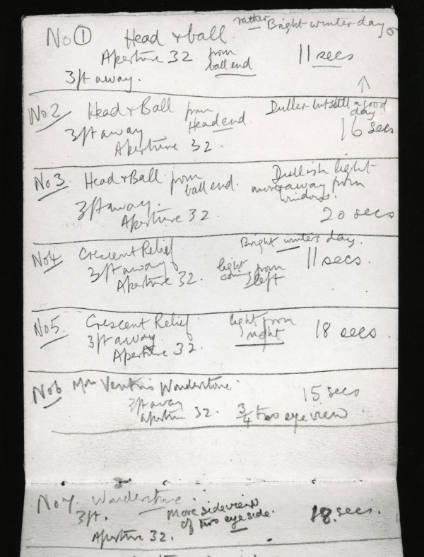 No 1 Head & ball rather Bright winter day
Aperture 32 from ball end 11 secs
3ft away.
No 2 Head & Ball from Head end Duller but still a good day
3ft away 16 secs
Aperture 32.
No 3 Head & Ball from ball end. Dullish light
3ft away. more away from window.
Aperture 32 20 secs
No 4 Crescent Relief Bright winter day.
3ft away light coming from left 11 secs.
Aperture 32.
No 5. Crescent Relief light from right 18 secs
3ft away
Aperture 32.
No 6 Wonderstone. 15 secs
3ft away
aperture 32. 3/4 two eye view
No 7. Wonderstone.
3ft. More side view of two eye side. 18 secs.
Aperture 32.